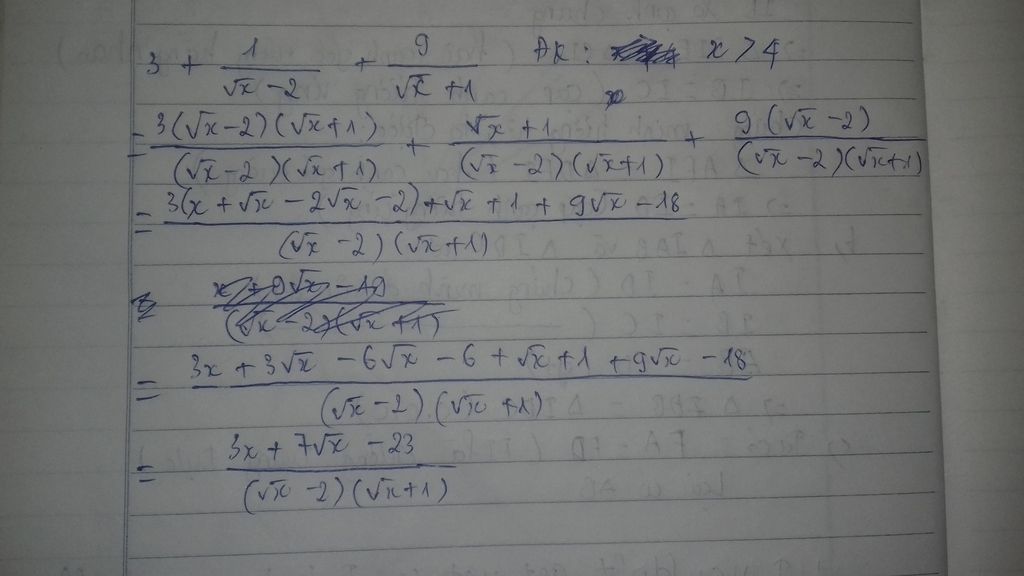 3 + 1/(√x - 2) + 9/(√x + 1) ĐK: x > 4
= 3(√x - 2)(√x + 1)/((√x - 2)(√x + 1)) + (√x + 1)/((√x - 2)(√x + 1)) + 9(√x - 2)/((√x - 2)(√x + 1))
= (3(x + √x - 2√x - 2) + √x + 1 + 9√x - 18)/((√x - 2)(√x + 1))
= (3x + 3√x - 6√x - 6 + √x + 1 + 9√x - 18)/((√x - 2)(√x + 1))
= (3x + 7√x - 23)/((√x - 2)(√x + 1))